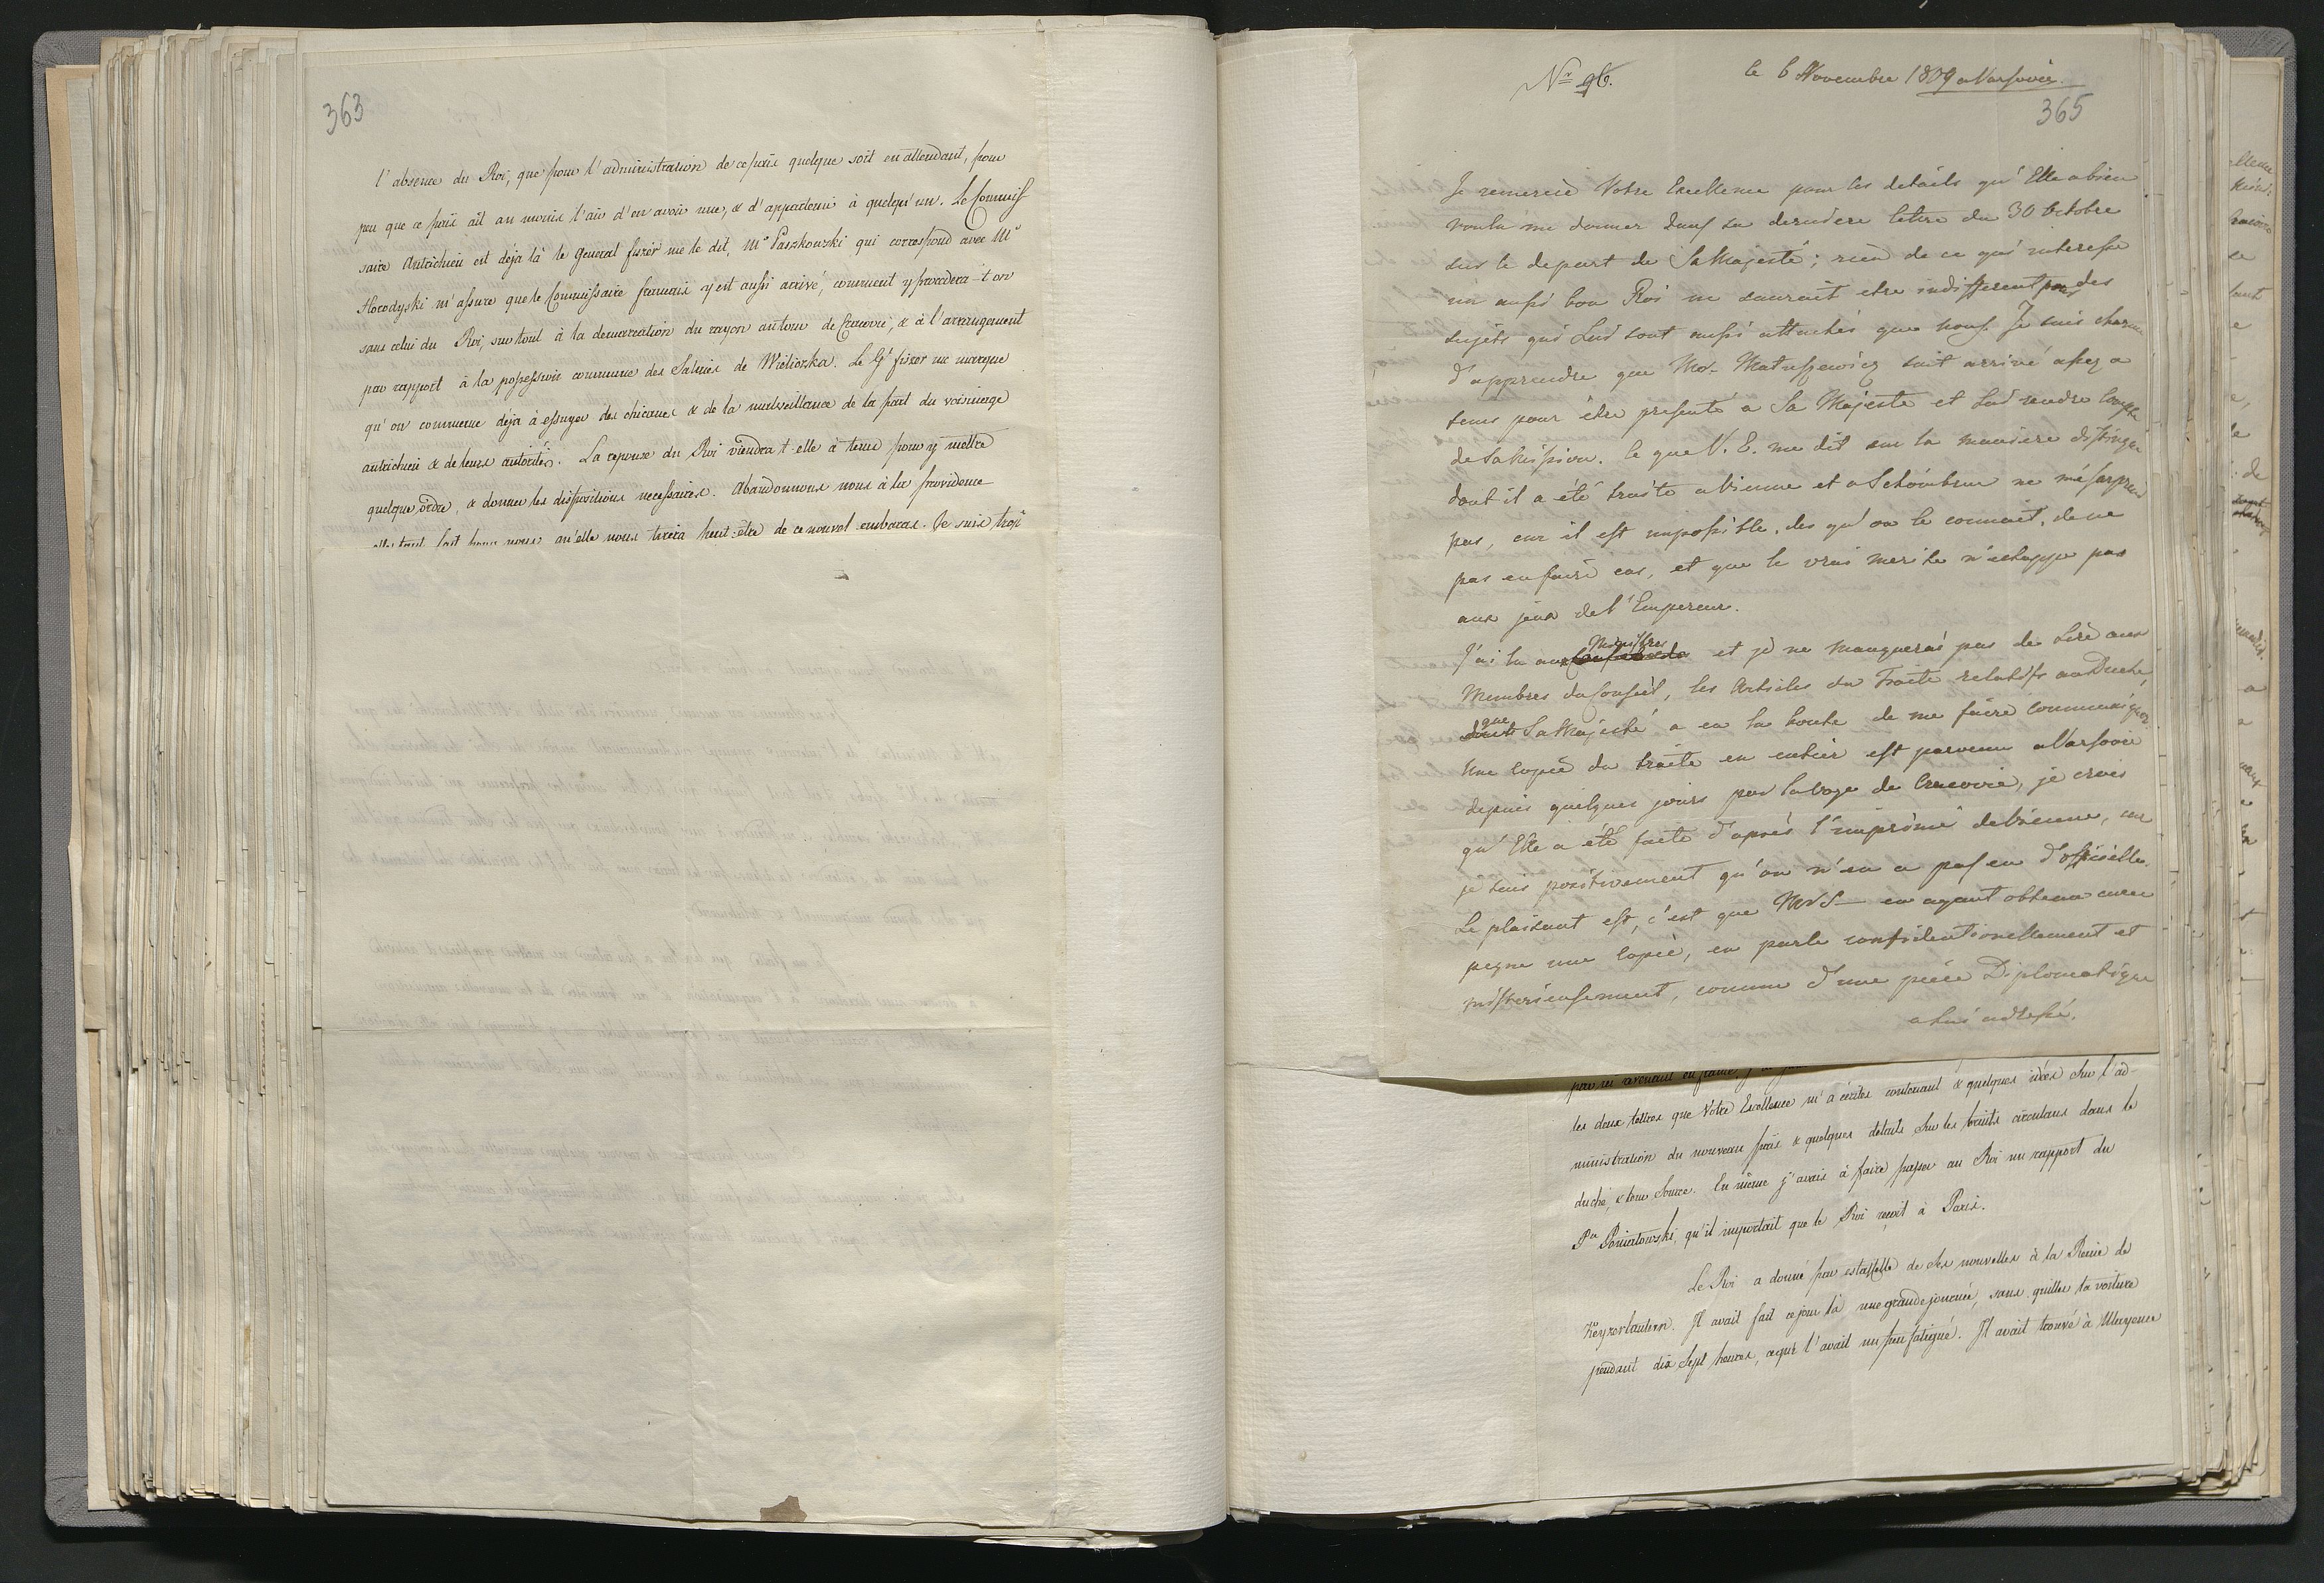 363
l'absence du Roi, que pour l'administration de ce païs quelque soit en attendant, pour
peu que ce païs ait au moins l'air d'en avoir une, & d'appartenir à quelqu'un. Le Commis
saire Autrichien est déja là le General fiszer me le dit, Mr Paszkowski qui correspond avec Mr
Horodyski m'assure que le Commissaire francais y est aussi arrivé, comment y procedera-t-on
sans celui du Roi, surtout à la demarcation du rayon autour de Cracovie, & à l'arrangement
par rapport à la possession commune des Salines de Wieliczka. Le Gl fiszer me marque
qu'on commence déja à essuyer des chicanes & de la malveillance de la part du voisinage
autrichien & de leurs autorités. La reponse du Roi viendra-t-elle à tems pour y mettre
quelque ordre, & donner les dispositions necessaires. Abandonnons nous à la providence
elle tant fait pour nous qu'elle nous tirera peut-être de ce nouvel embaras. Je suis trop
Nr 96.
le 6 Novembre 1809 a Varsovie.
365
Je remercie Votre Excellence pour les details qu'Elle a bien
voulu me donner dans sa derniere lettre du 30 Octobre
sur le depart de Sa Majesté; rien de ce qui interesse
un aussi bon Roi ne sauroit etre indifferent pour des
sujets qui Lui sont aussi attachés que nous. Je suis charmé
d'apprendre que Mr Matuszewicz soit arrivé assez a
tems pour être presenté a Sa Majesté et Lui rendre Compte
de Sa Mission. Ce que V. E. me dit sur la maniere distinguée
dont il a été traité a Vienne et a Schönbrun ne me surprend
pas, car il est impossible, des qu'on le connait, de ne
pas en faire cas, et que le vrai merite n'echappe pas
aux jeux de l'Empereur.
J'ai lu aux Ministres et je ne manquerai pas de Lire aux
Membres du Conseil, les Articles du Traité relatifs au Duché,
que Sa Majesté a eu la bonté de me faire communiquer
Une copie du traité en entier est parvenu a Varsovie
depuis quelques jours par la voye de Cracovie, je crois
qu'Elle a été faite d'après l'imprimé de Vienne, car
je sais positivement qu'on n'en a pas eu d'officielle.
Le plaisant est, c'est que Mr S— en ayant obtenu
une copie, en parle confidentionellement et
misterieusement, comme d'une piece Diplomatique
a lui adressé.
les deux lettres que Votre Excellence m'a écrites contenant & quelques idées sur l'ad-
ministration du nouveau païs & quelques détails sur les bruits circulans dans le
duché, & leur source. En même j'avais à faire passer au Roi un rapport du
Pce Poniatowski, qu'il importait que le Roi recoit à Paris.
Le Roi a donné par estaffette de Ses nouvelles à la Reine de
Keyzerlautern. Il avait fait ce jour là une grande journée, sans quitter la voiture
pendant dix Sept heures, ce qui l'avait un peu fatigué. Il avait trouvé à Mayence